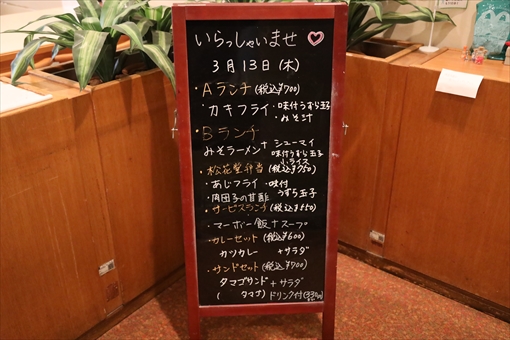 いらっしゃいませ
3月13日(木)
・Aランチ(税込¥700)
カキフライ・味付うずら玉子
・みそ汁
・Bランチ
みそラーメン+シューマイ
味付うずら玉子
小ライス
・松花堂弁当(税込¥750)
・あじフライ・味付
うずら玉子
・肉団子の甘酢
・サービスランチ(税込¥550)
マーボー飯+スープ
・カレーセット(税込¥600)
カツカレー+サラダ
・サンドセット(税込¥700)
タマゴサンド+サラダ
(タマゴ)ドリンク付